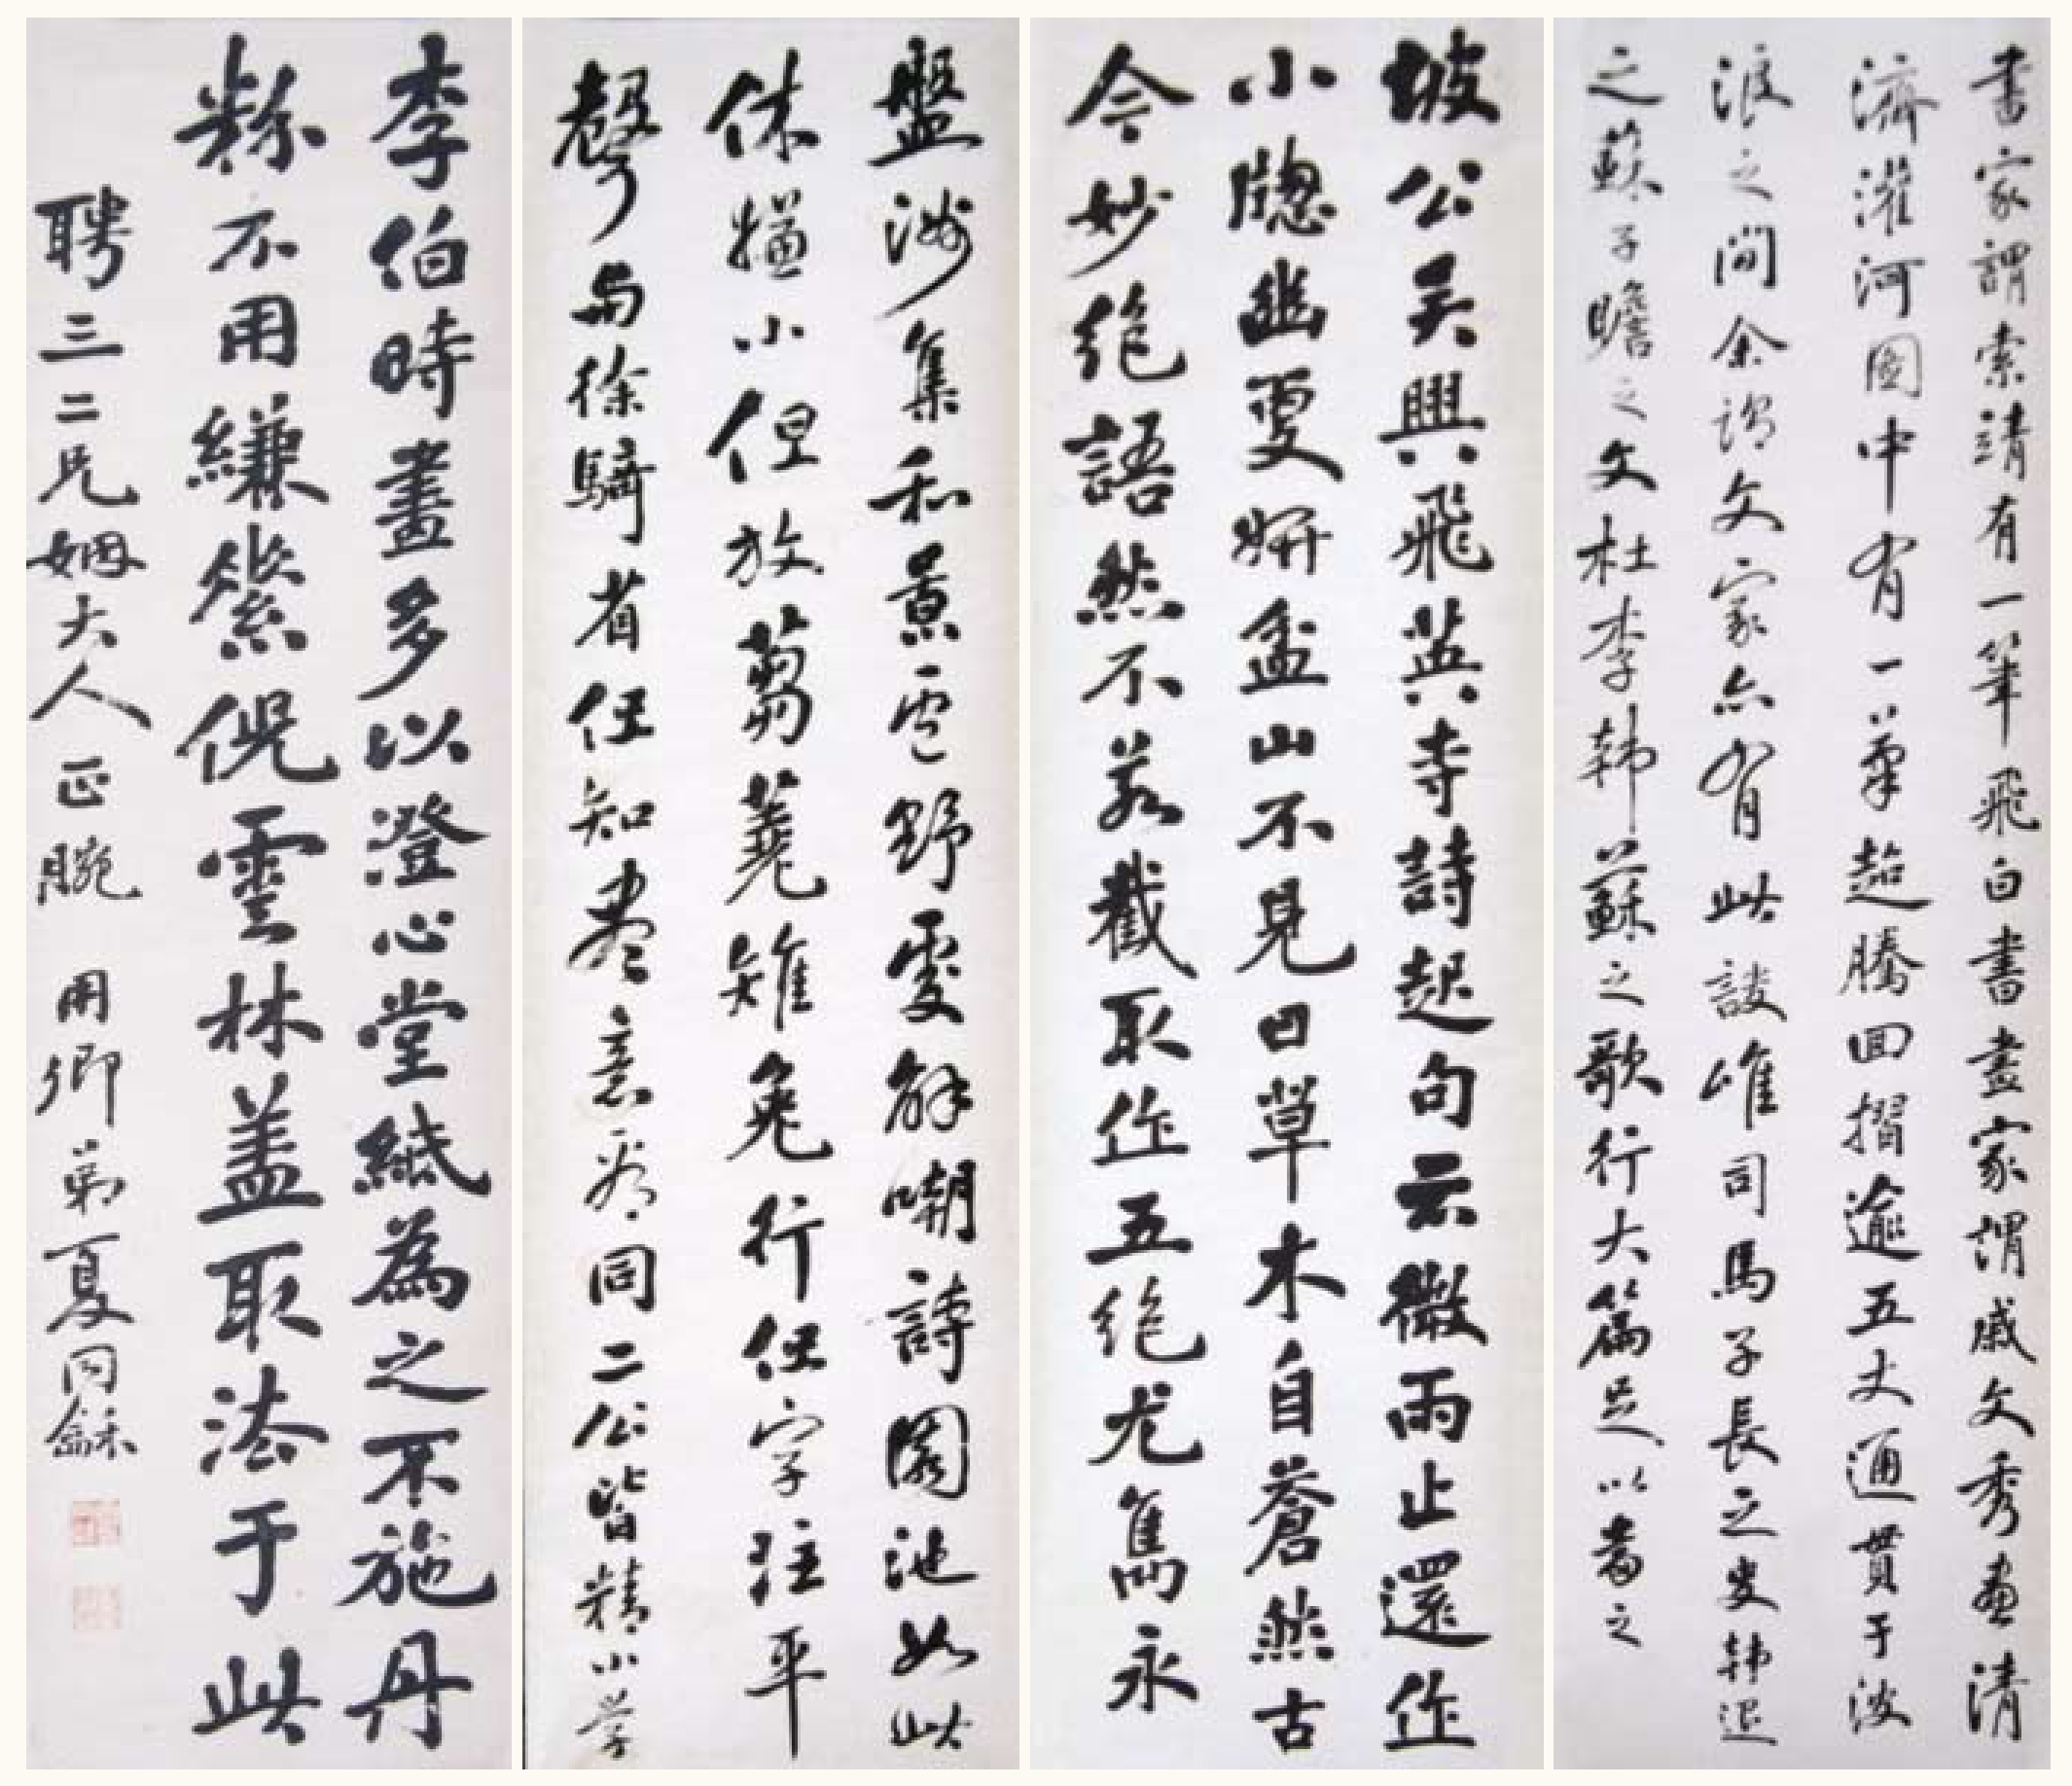 書家謂索靖有一筆飛白書畫家謂戚文秀畫清
濟灌河圖中有一筆超騰回摺逾五丈通貫于波
浪之間余謂文家亦有此談唯司馬子長之史韓退
之蘇子瞻之文杜李韓蘇之歌行大篇足以當之
坡公吴興飛英寺詩起句云微雨止還作
小牕幽更妍盆山不見日草木自蒼然古
今妙絶語然不若截取作五絶尤雋永
盤洲集和景雪野處解嘲詩園池如此
休嫌小但放蒭蕘雉兔行但字注平
聲與徐騎省但知盡意看同二公皆精小學
李伯時畫多以澄心堂紙為之不施丹
粉不用縑素倪雲林盖取法于此
聘三二兄姻大人正腕 用卿弟夏同龢